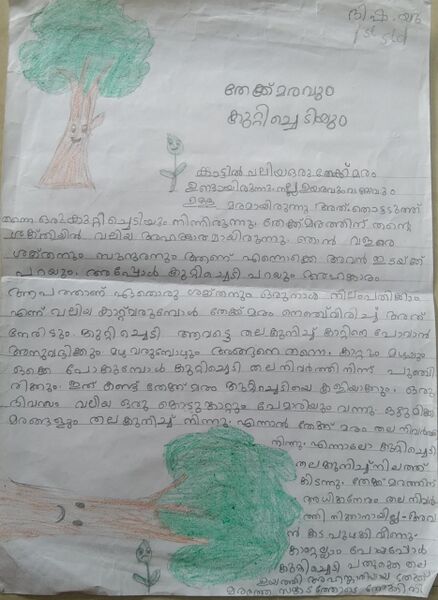 ദിഷ. യു
1st std
തേക്ക് മരവും
കുറ്റിച്ചെടിയും
കാട്ടിൽ വലിയ ഒരു തേക്ക് മരം
ഉണ്ടായിരുന്നു. നല്ല ഉയരവും വണ്ണവും
ഉള്ള മരമായിരുന്നു അത്. തൊട്ടടുത്ത്
തന്നെ ഒരു കുറ്റിച്ചെടിയും നിന്നിരുന്നു. തേക്ക് മരത്തിന് തന്റെ
ശക്തിയിൽ വലിയ അഹങ്കാരമായിരുന്നു. ഞാൻ വളരെ
ശക്തനും സുന്ദരനും ആണ് എന്നൊക്കെ അവൻ ഇടയ്ക്ക്
പറയും. അപ്പോൾ കുറ്റിച്ചെടി പറയും അഹങ്കാരം
ആപത്താണ് ഏതൊരു ശക്തനും ഒരുനാൾ നിലംപതിക്കും
എന്ന് വലിയ കാറ്റ് വരുമ്പോൾ തേക്ക് മരം നെഞ്ച് വിരിച്ച് അത്
നേരിടും. കുറ്റിച്ചെടി ആവട്ടെ തലകുനിച്ച് കാറ്റിനെ പോവാൻ
അനുവദിക്കും മഴ വരുമ്പോഴും അങ്ങനെ തന്നെ. കാറ്റും മഴയും
ഒക്കെ പോകുമ്പോൾ കുറ്റിച്ചെടി തല നിവർത്തി നിന്ന് പുഞ്ചി
രിക്കും. ഇത് കണ്ട് തേക്ക് മരം കുറ്റിച്ചെടിയെ കളിയാക്കും. ഒരു
ദിവസം വലിയ ഒരു കൊടുങ്കാറ്റും പേമാരിയും വന്നു.
മരങ്ങളും തലകുനിച്ച് നിന്നു. എന്നാൽ തേക്ക് മരം തല നിവർത്തി
നിന്നു. എന്നാലോ കുറ്റിച്ചെടി
തലകുനിച്ച് നിലത്ത്
കിടന്നു. തേക്ക് മരത്തിന്
അധികനേരം തല നിവർ
ത്തി നിൽക്കാനായില്ല. അവ
ൻ കട പുഴകി വീണു.
കാറ്റെല്ലാം പോയപ്പോൾ
കുറ്റിച്ചെടി പതുക്കെ തല
ഉയർത്തി അഹങ്കാരിയായ തേക്ക്
മരത്തെ സങ്കടത്തോടെ നോക്കി നി